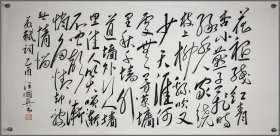 花褪残红青
杏小燕子飞时
绿水人家绕
枝上柳绵吹又
少天涯何
处无芳草墙
里秋千墙外
道墙外行人墙
里佳人笑笑渐
不闻声渐
悄多情却被
无情恼
苏轼词乙酉汪国真书